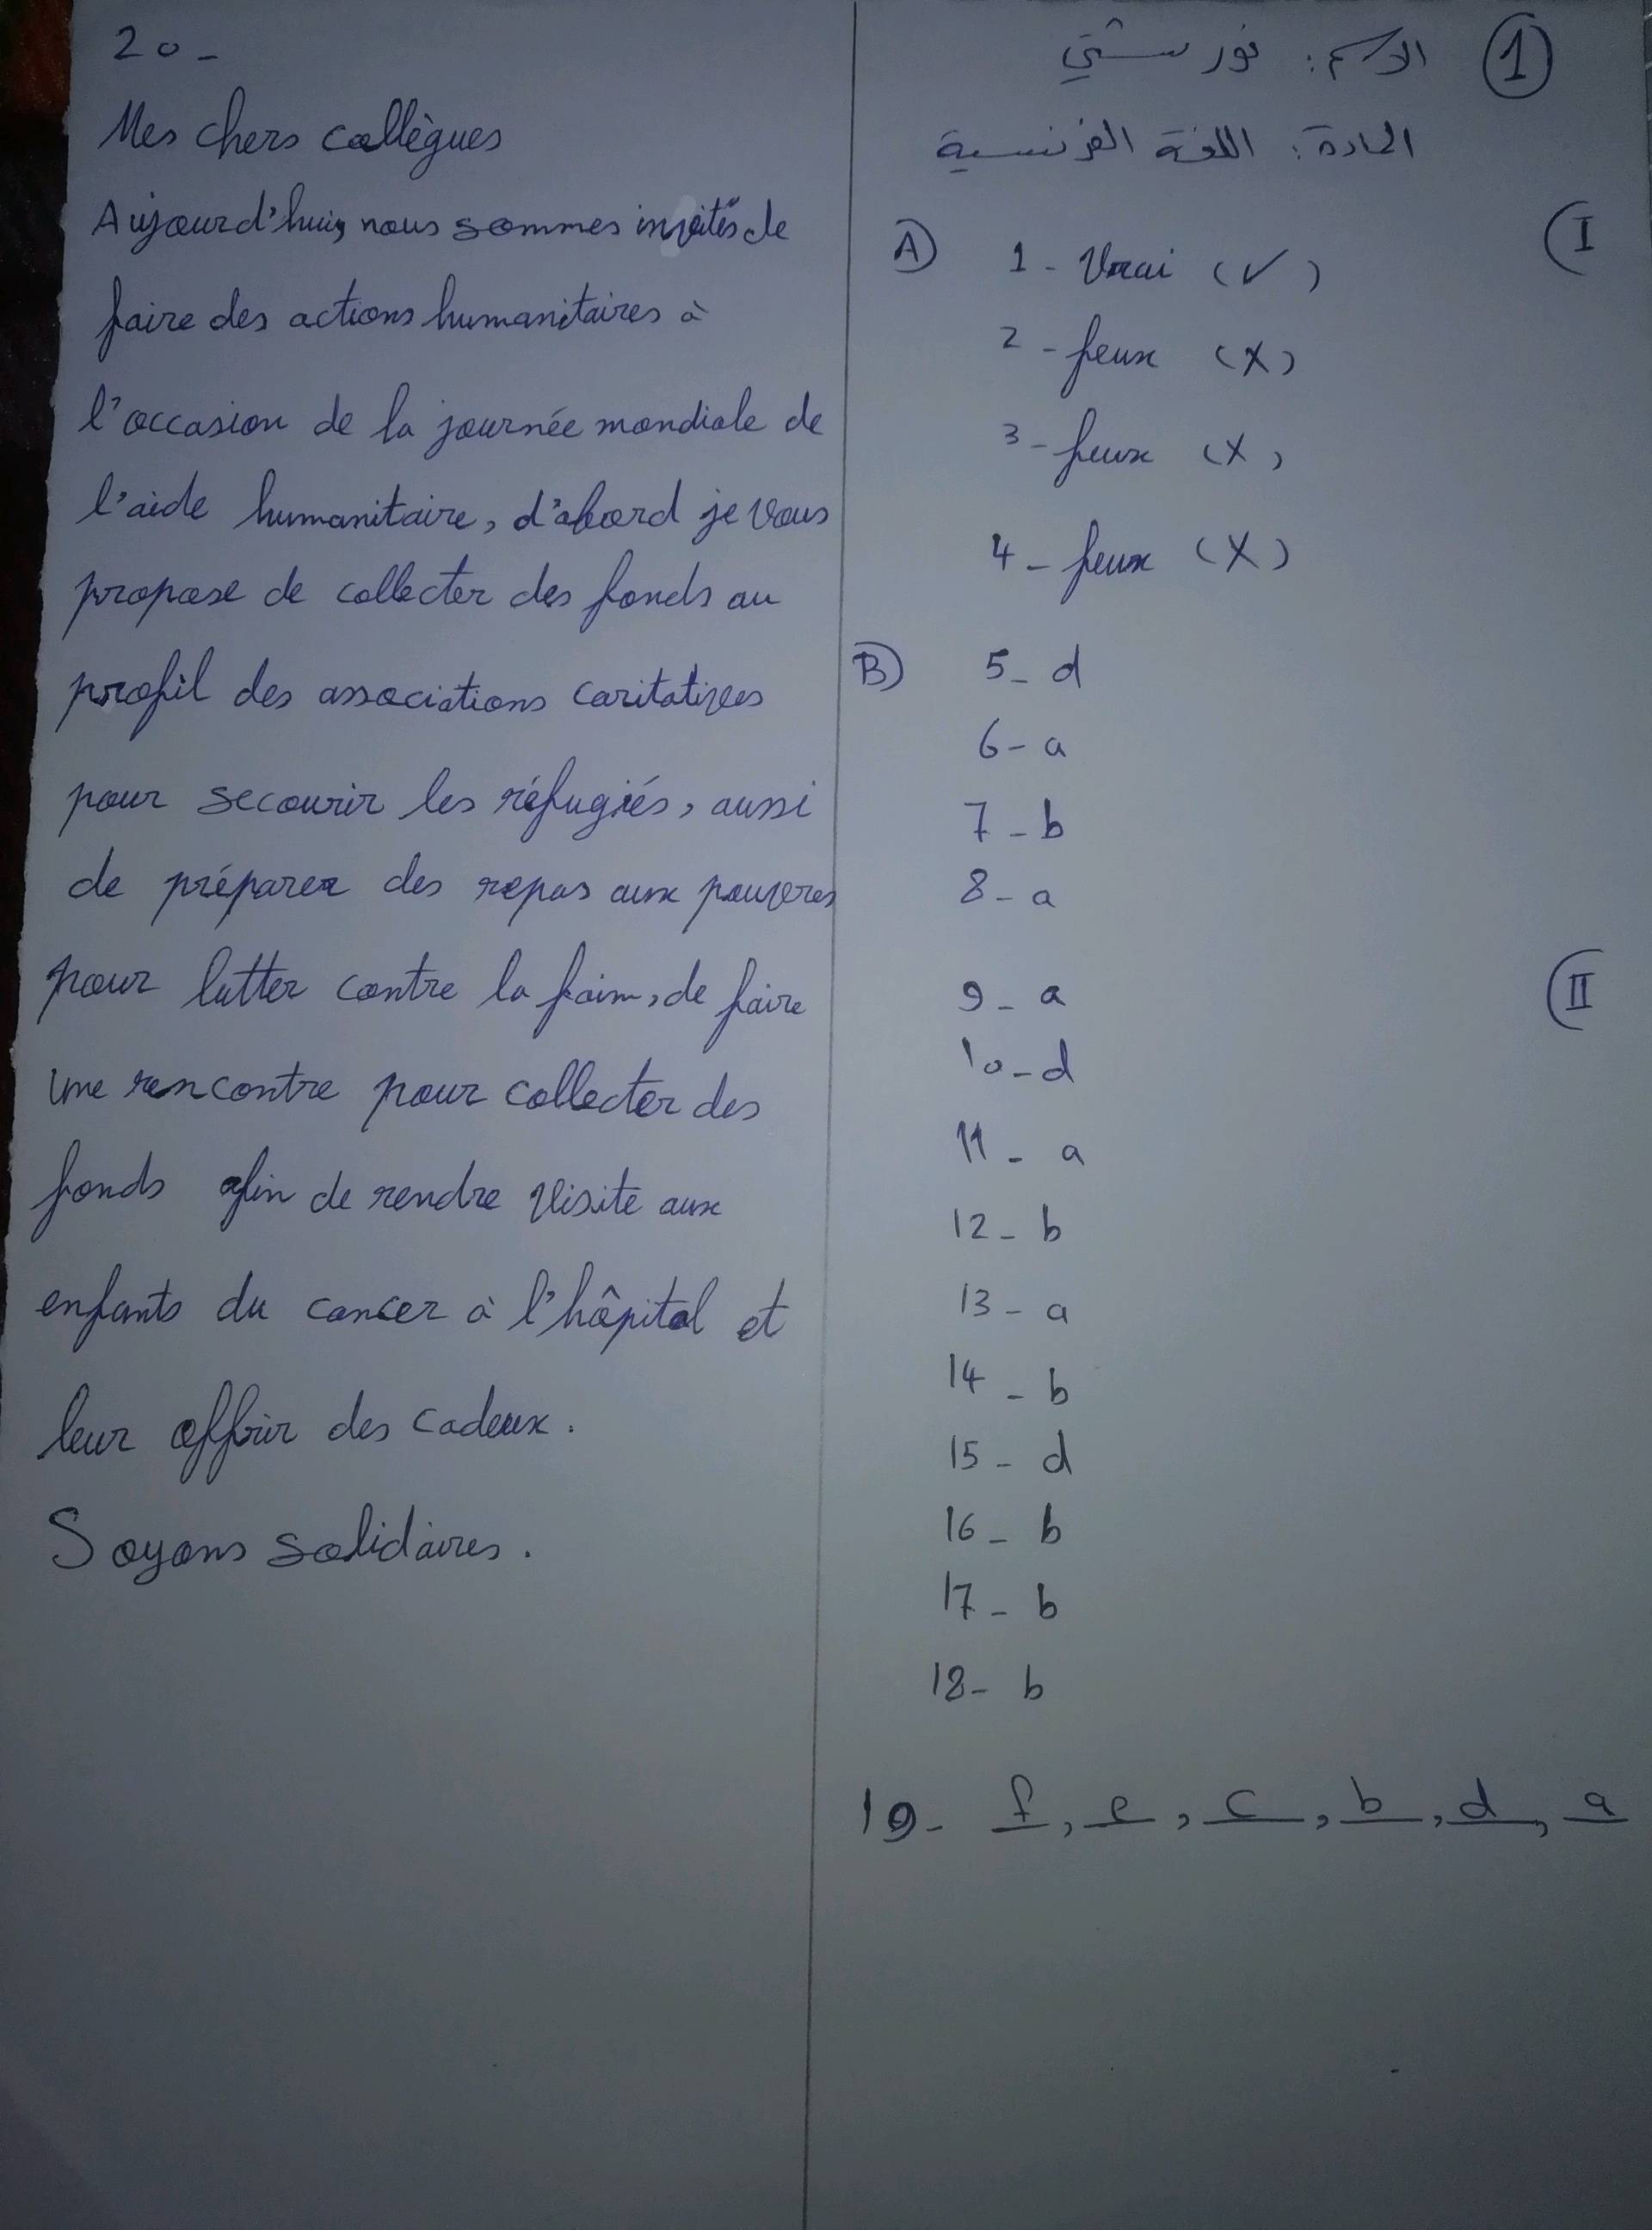 ① الاسم: نور ستي
المادة: اللغة الفرنسية
I
A) 1 - Vrai (✓)
2 - feux (X)
3 - feux (X)
4 - feux (X)
B) 5 - d
6 - a
7 - b
8 - a
II
9 - a
10 - d
11 - a
12 - b
13 - a
14 - b
15 - d
16 - b
17 - b
18 - b
19 - f, e, c, b, d, a
20 -
Mes chers collègues
Aujourd'hui, nous sommes invités de
faire des actions humanitaires à
l'occasion de la journée mondiale de
l'aide humanitaire, d'abord je vous
propose de collecter des fonds au
profil des associations caritatives
pour secourir les réfugiés, aussi
de préparer des repas aux pauvres
pour lutter contre la faim, de faire
une rencontre pour collecter des
fonds afin de rendre visite aux
enfants du cancer à l'hôpital et
leur offrir des cadeux.
Soyons solidaires.